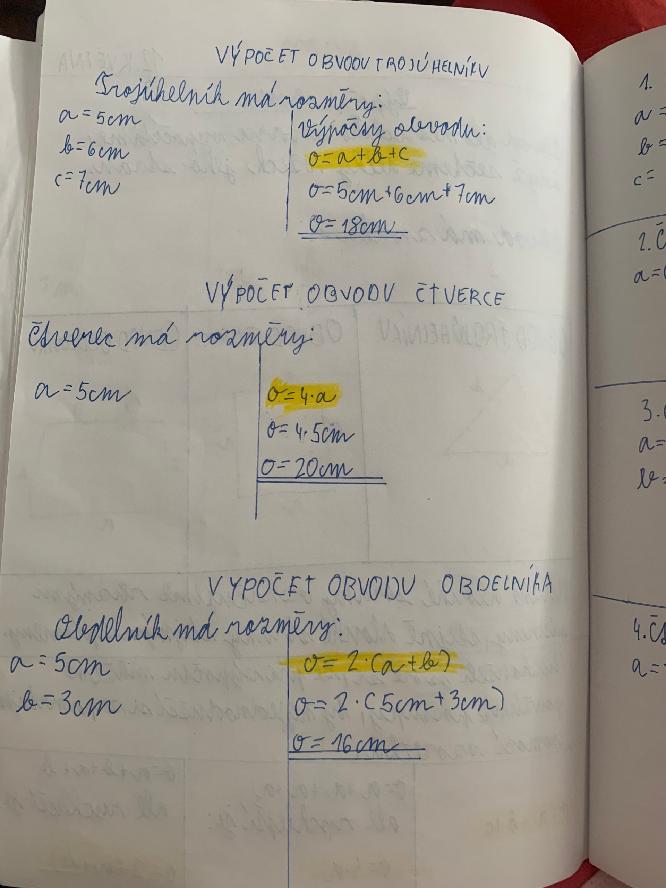 VÝPOČET OBVODU TROJÚHELNÍKU
Trojúhelník má rozměry:
a = 5cm
b = 6cm
c = 7cm
Výpočty obvodu:
o = a + b + c
o = 5cm + 6cm + 7cm
o = 18cm
VÝPOČET OBVODU ČTVERCE
Čtverec má rozměry:
a = 5cm
o = 4·a
o = 4·5cm
o = 20cm
VÝPOČET OBVODU OBDELNÍKA
Obdelník má rozměry:
a = 5cm
b = 3cm
o = 2·(a+b)
o = 2·(5cm+3cm)
o = 16cm
1.
a =
b =
c =
2. Č
a =
3.
a =
b =
4. Čs
a =